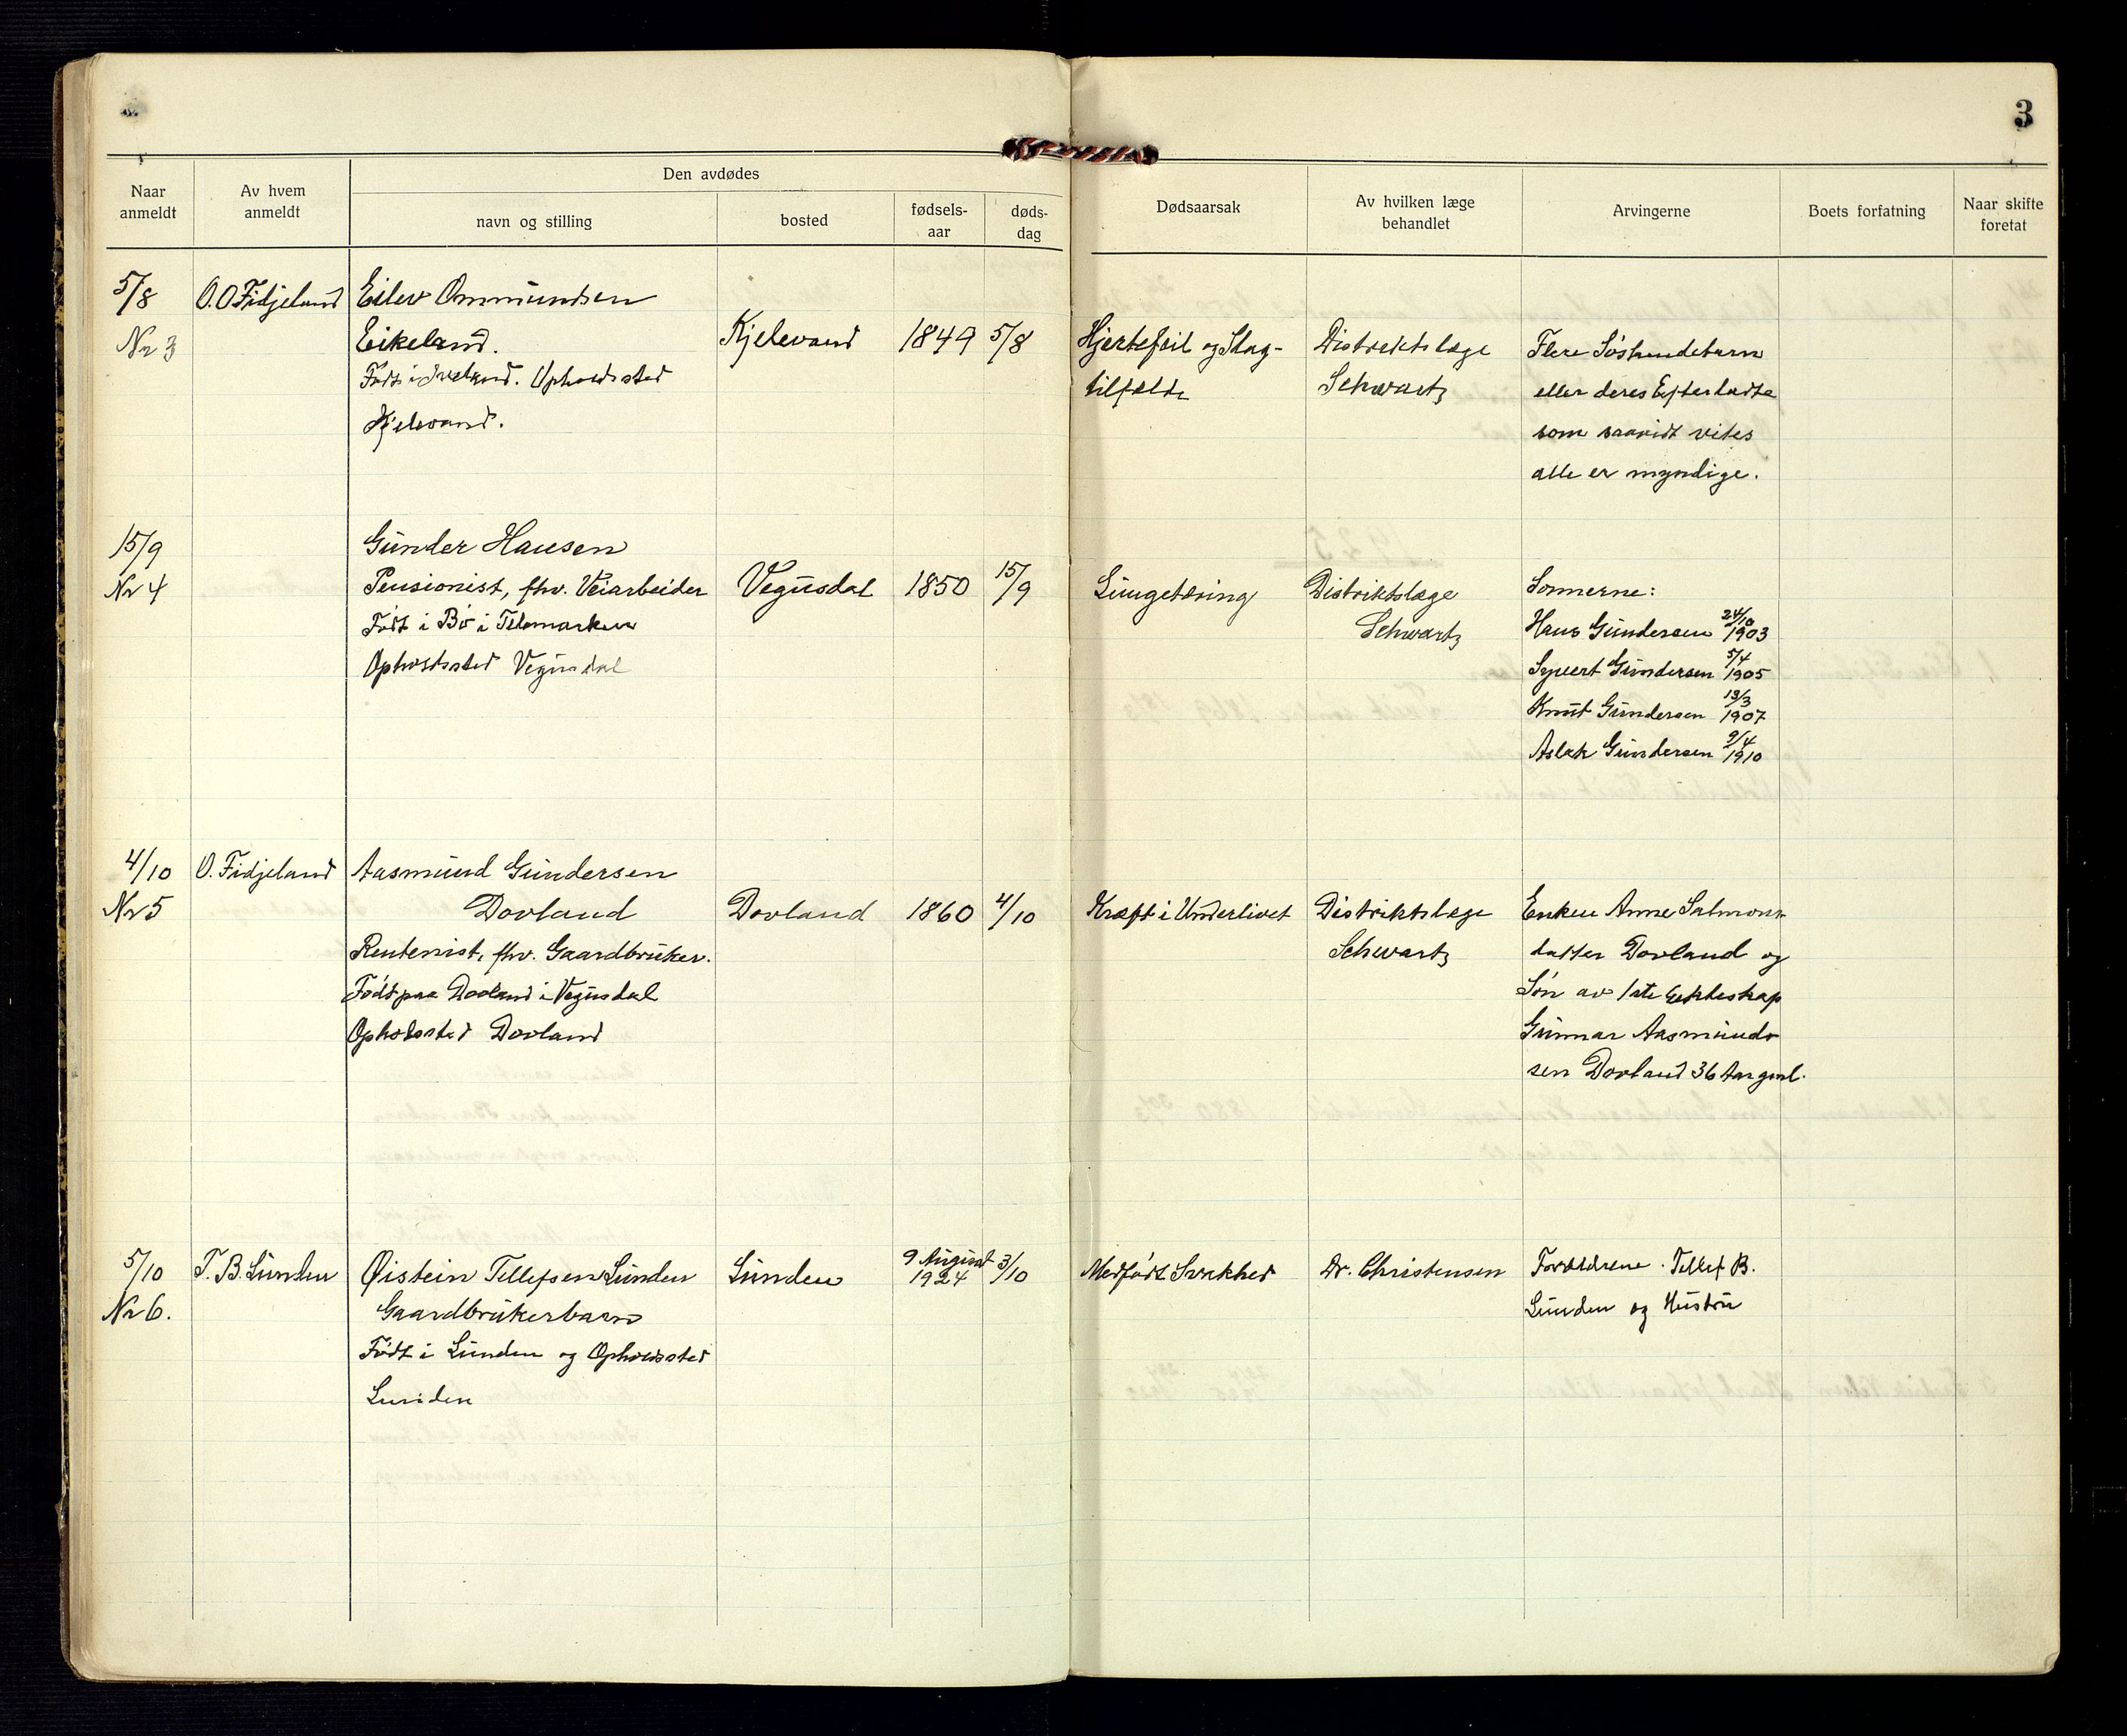 3
Den avdødes
Naar anmeldt
Av hvem anmeldt
navn og stilling
bosted
fødsels-aar
døds-dag
Dødsaarsak
Av hvilken læge behandlet
Arvingerne
Boets forfatning
Naar skifte foretat
5/8
Nr 3
O. O Fidjeland
Eilev Ommundsen
Eikeland.
Født i Iveland. Opholdssted
Kjelevand.
Kjelevand
1849
5/8
Hjertefeil og Slag-
tilfælde
Distriktslæge
Schwartz
Flere Søskendebarn
eller deres Efterladte
som saavidt vites
alle er myndige.
15/9
Nr 4
Gunder Hansen
Pensionist, fhv. Veiarbeider
Født i Bø i Telemarken
Opholdssted Vegusdal
Vegusdal
1850
15/9
Lungetæring
Distriktslæge
Schwartz
Sønnerne:
Hans Gundersen 24/10 1903
Syvert Gundersen 5/4 1905
Knut Gundersen 13/3 1907
Aslak Gundersen 9/4 1910
4/10
Nr 5
O. Fidjeland
Aasmund Gundersen
Dovland
Rentenist, fhv. Gaardbruker.
Født paa Dovland i Vegusdal
Opholdssted Dovland
Dovland
1860
4/10
Kræft i Underlivet
Distriktslæge
Schwartz
Enken Anne Salmons-
datter Dovland og
Søn av 1ste Ekteskap
Gunnar Aasmunds-
sen Dovland 36 Aar gml.
5/10
Nr 6.
T. B. Lunden
Øistein Tellefsen Lunden
Gaardbrukerbarn
Født i Lunden og Opholdssted
Lunden
Lunden
9 August
1924
3/10
Medfødt Svakhed
Dr. Christensen
Forældrene Tellef B.
Lunden og Hustru